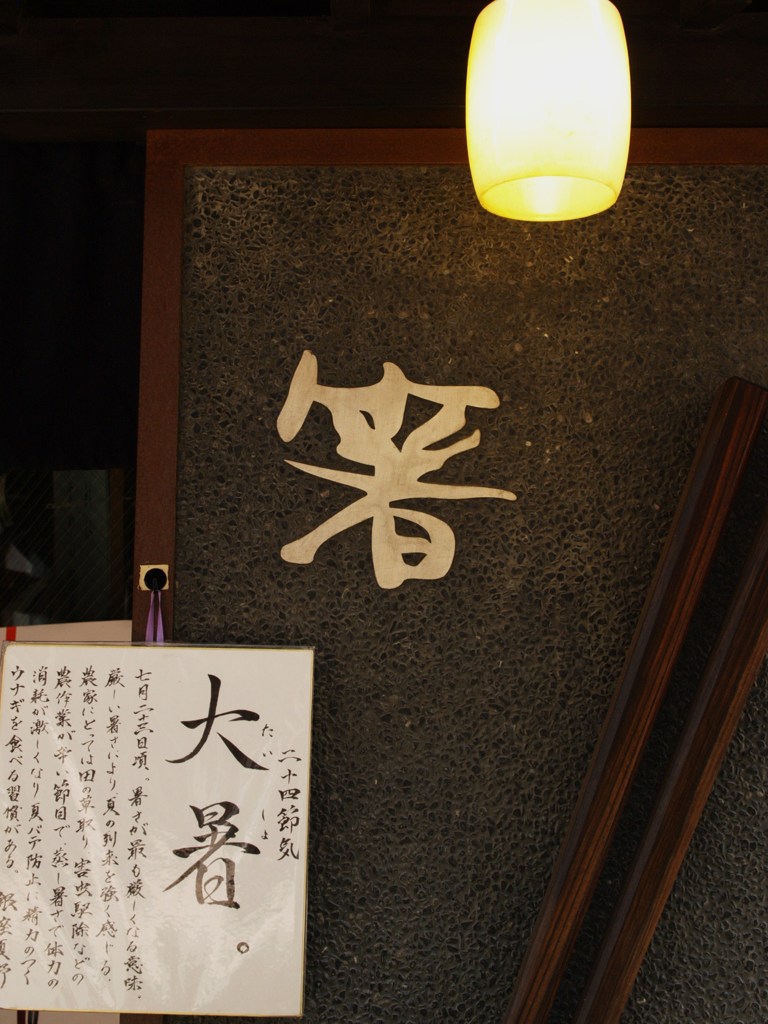 箸
二十四節気
大暑。
たいしょ
七月二十三日頃。暑さが最も厳しくなる意味。
厳しい暑さにより、夏の到来を強く感じる。
農家にとっては田の草取り、害虫駆除などの
農作業が辛い節目で、蒸し暑さで体力の
消耗が激しくなり、夏バテ防止に精力のつく
ウナギを食べる習慣がある。